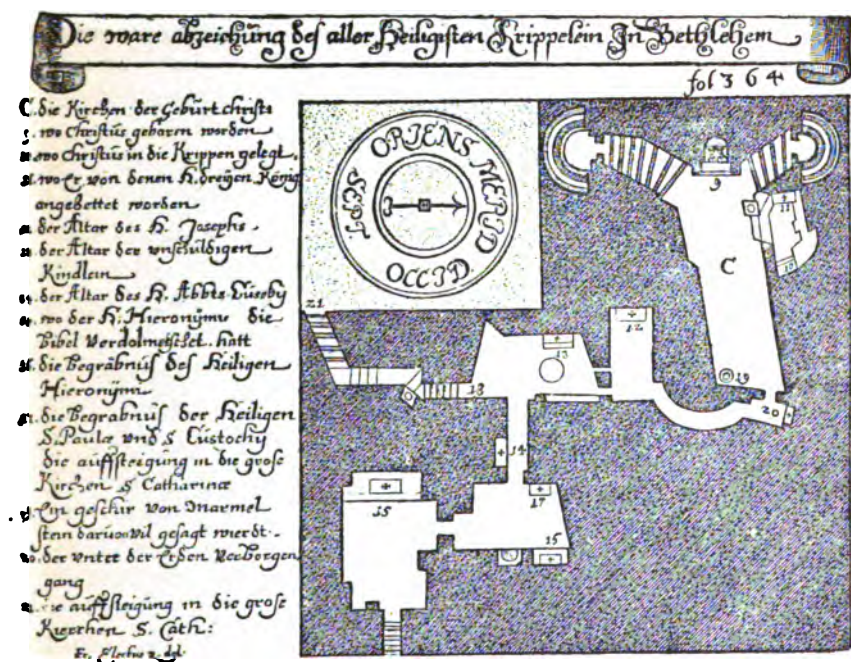 Die ware abzeichung des aller Heiligisten Krippelein In Bethlehem
fol 364
C. die Kirchen der Geburt christi
wo Christus geboren worden
wo Christus in die Krippen gelegt.
wo Er von denen H. dreyen König
angebettet worden
der Altar des H. Josephs.
der Altar der unschuldigen
Kindlein
der Altar des H. Abbts Eusebÿ
wo der H. Hieronÿmus die
Bibel verdolmetschet hatt
die Begräbnüs des Heiligen
Hieronÿmi
die Begrabnüs der Heiligen
S. Paulæ und S Eustochÿ
die auffsteigung in die grose
Kirchen S Catharinæ
ein geschir von Marmel
stein daruon vil gesagt wierdt.
der unter der Erden verborgen
gang
die auffsteigung in die grose
Kierchen S. Cath:
ORIENS
MERID
OCCID
SEPT
9
11
10
C
19
20
12
13
18
21
14
17
15
15